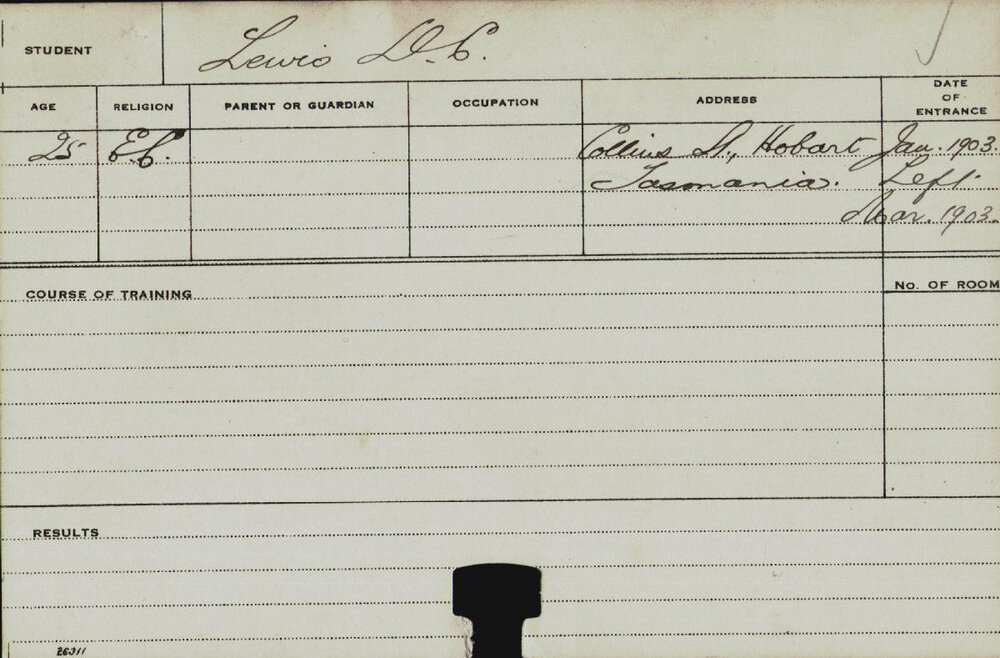 STUDENT Lewis D. C.
AGE RELIGION PARENT OR GUARDIAN OCCUPATION ADDRESS DATE OF ENTRANCE
25 E.C. Collins St., Hobart Jan. 1903.
Tasmania. Left
Mar. 1903.
COURSE OF TRAINING No. OF ROOM
RESULTS
26311